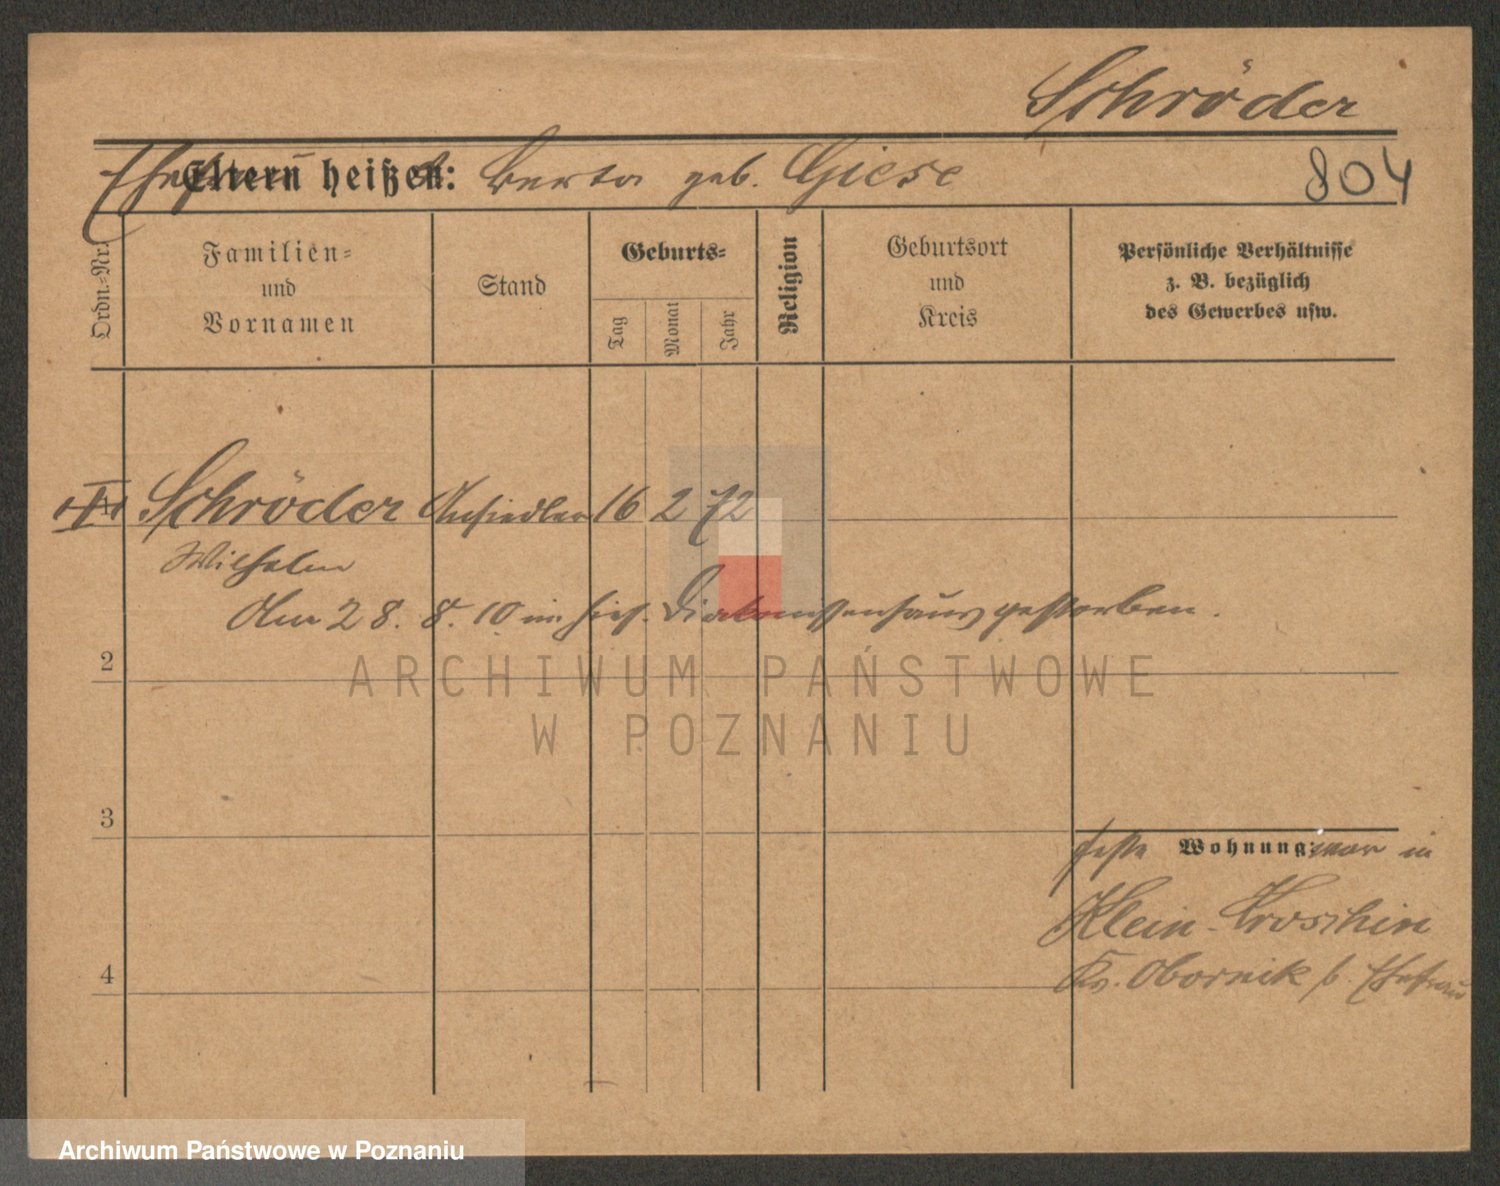 Schröder
Eltern heißen: Berta geb. Giese
804
Ordn.-Nr.
Familien-
und
Vornamen
Stand
Geburts-
Tag
Monat
Jahr
Religion
Geburtsort
und
Kreis
Persönliche Verhältnisse
z. B. bezüglich
des Gewerbes usw.
Schröder Ansiedler 16 2 72
Wilhelm
Am 28. 8. 10 im hies. Diakonissenhaus gestorben.
2
ARCHIWUM PAŃSTWOWE
W POZNANIU
3
feste Wohnung: war in
Klein-Kroschin
4
Kr. Obornik b. Ehefrau
Archiwum Państwowe w Poznaniu